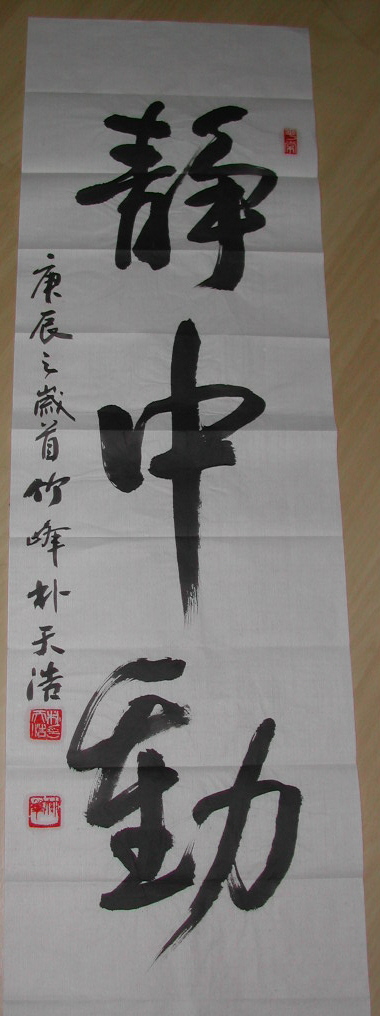 靜中動
庚辰之歲首竹峰朴天浩